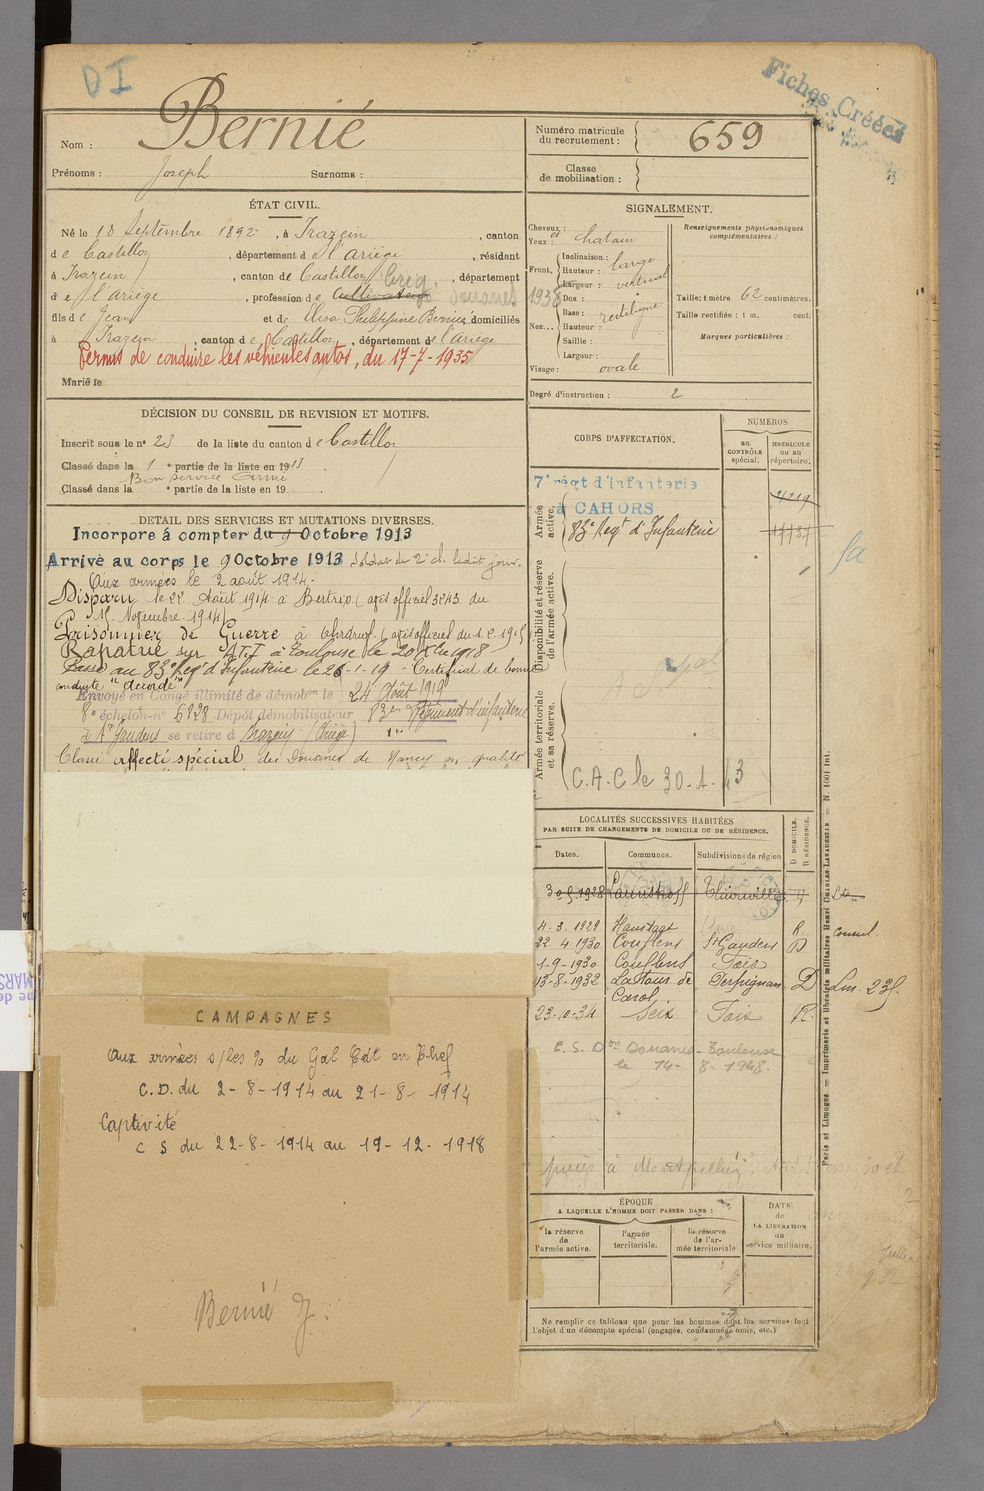 DI
Fiches Créées
Nom : Bernié
Prénoms : Joseph Surnoms :
Numéro matricule du recrutement : 659
Classe de mobilisation :
ÉTAT CIVIL.
Né le 18 Septembre 1892, à Irazein, canton
de Castillon, département de l'Ariège, résidant
à Irazein, canton de Castillon, département
de l'Ariège, profession de Cultivateur Brig. Douanes 1938
fils de Jean et de Philippine Bernié domiciliés
à Irazein, canton de Castillon, département de l'Ariège
Permis de conduire les véhicules autos, du 17-7-1935
Marié le
SIGNALEMENT.
Cheveux et
Yeux : chatain
Front. Inclinaison : large
Hauteur : vertical
Largeur :
Nez... Dos :
Base : rectiligne
Hauteur :
Saillie :
Largeur :
Visage : ovale
Renseignements physionomiques complémentaires :
Taille : 1 mètre 62 centimètres.
Taille rectifiée : 1 m. cent.
Marques particulières :
Degré d'instruction : 2
DÉCISION DU CONSEIL DE REVISION ET MOTIFS.
Inscrit sous le n° 23 de la liste du canton de Castillon
Classé dans la 1 partie de la liste en 1913
Bon service armé
Classé dans la partie de la liste en 19
DETAIL DES SERVICES ET MUTATIONS DIVERSES.
Incorporé à compter du 9 Octobre 1913
Arrivé au corps le 9 Octobre 1913 Soldat de 2e cl. ledit jour.
Aux armées le 2 août 1914.
Disparu le 22 Août 1914 à Bertrix (avis officiel 3243 du
15 Novembre 1914)
Prisonnier de Guerre à Ohrdruf (avis officiel du 1.2.1915)
Rapatrié sur à Toulouse le 20 Xbre 1918
Passé au 83e Reg't d'Infanterie le 26-1-19 - Certificat de bonne
conduite "accordé"
Envoyé en Congé illimité de démobon le 24 Août 1919
8e échelon n° 6828 Dépôt démobilisateur 83e Régiment d'infanterie
à St Gaudens se retire à Irazein (Ariège)
Classé affecté spécial des Douanes de Nancy en qualité
CORPS D'AFFECTATION.
NUMÉROS
au CONTRÔLE spécial.
MATRICULE ou au répertoire.
Armée active.
7e régt d'infanterie
à CAHORS
4219
83e Reg't d'Infanterie
Disponibilité et réserve de l'armée active.
Armée territoriale et sa réserve.
C.A.C le 30-1-43
LOCALITÉS SUCCESSIVES HABITÉES
PAR SUITE DE CHANGEMENTS DE DOMICILE OU DE RÉSIDENCE.
Dates. Communes. Subdivisions de région D. DOMICILE. R. RÉSIDENCE.
Launstroff Thionville D
4-3-1929 R.
22 4 1930 Couflens St Gaudens D
1-9-1930 Couflens Foix
13-8-1932 Latour de Carol Perpignan D
23-10-34 Seix Foix R
E. S. Don Douanes - Toulouse
le 14-8-1948.
à Montpellier
CAMPAGNES
Aux armées s/les O/ du Gal Cdt en Chef
C.D. du 2-8-1914 au 21-8-1914
Captivité
C S du 22-8-1914 au 19-12-1918
Bernié J.
ÉPOQUE
A LAQUELLE L'HOMME DOIT PASSER DANS :
la réserve de l'armée active.
l'armée territoriale.
la réserve de l'armée territoriale
DATE de LA LIBÉRATION du service militaire.
Ne remplir ce tableau que pour les hommes dont les services font
l'objet d'un décompte spécial (engagés, condamnés, omis, etc.)
Paris et Limoges. — Imprimerie et librairie militaires Henri CHARLES-LAVAUZELLE — N. 1001 Int.